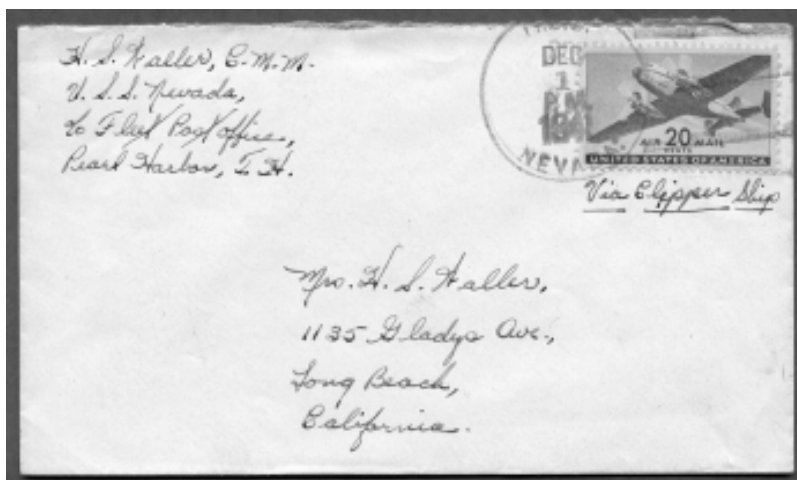 H. S. Waller, C. M. M.
U. S. S. Nevada,
℅ Fleet Post Office,
Pearl Harbor, T. H.
DEC
1
P.M.
1941
NEVA
AIR 20 MAIL
CENTS
UNITED STATES OF AMERICA
Via Clipper Ship
Mrs. H. S. Waller,
1135 Gladys Ave.,
Long Beach,
California.